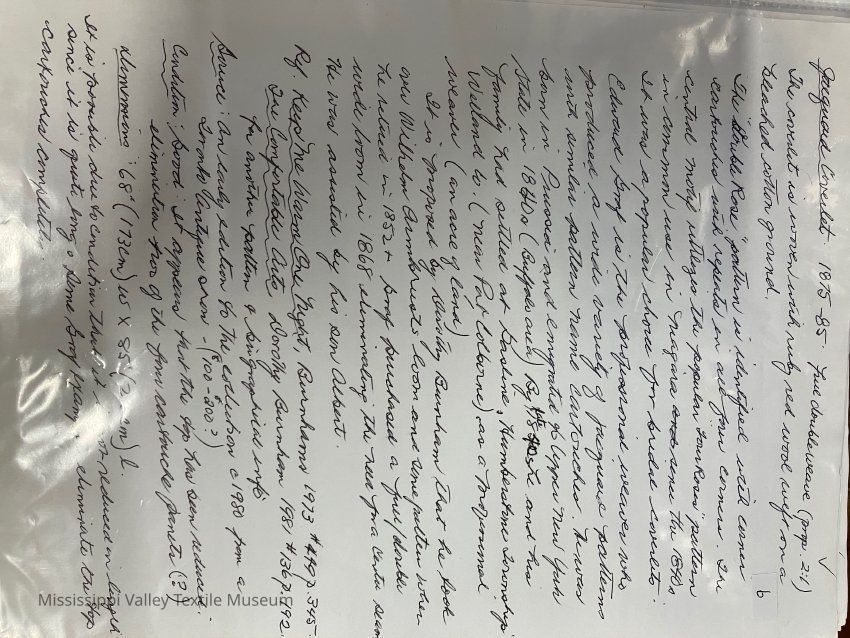 Jacquard Coverlet 1875-85 free doubleweave (prop. 2:1)
b
The coverlet is woven with ruby red wool weft on a
bleached cotton ground.
The "Double Rose" pattern is identified with corner
cartouches with repeats in all four corners. The
central motif utilizes the popular four Roses pattern
in common use in Niagara area the 1840s
It was a popular choice for bridal coverlets.
Edward Graf is the professional weaver who
produced a wide variety of jacquard patterns
with similar pattern name cartouches. He was
born in Prussia and emigrated to New York
State in 1840s (Buffalo area) By he and his
family had settled at Gasline, Humberstone Township
Welland Co (near Port Colborne) as a professional
weaver (an acre of land)
It is proposed by Dorothy Burnham that he took
over Wilhelm Armbrust's loom and some patterns when
he retired in 1852 + Graf purchased a free/double
wide loom in 1868 eliminating the need for a centre seam
He was assisted by his son Albert.
Ref. Keep Me Warm One Night, Burnhams 1973 #447 p. 345
The Comfortable Arts Dorothy Burnham 1981 #136 p. 192
for another pattern & biographical info
Source: An early addition to the collection c 1980 from a
Antique show - (\$100-200?)
Condition: good. It appears that the top has been reduced
eliminating two of the four cartouche panels (?)
Dimensions: 68" (173cm) w X 85" cm) l.
It is possible due to condition that it reduced in length
since it is quite long & some Graf eliminate the top
cartouches completely.
Mississippi Valley Textile Museum